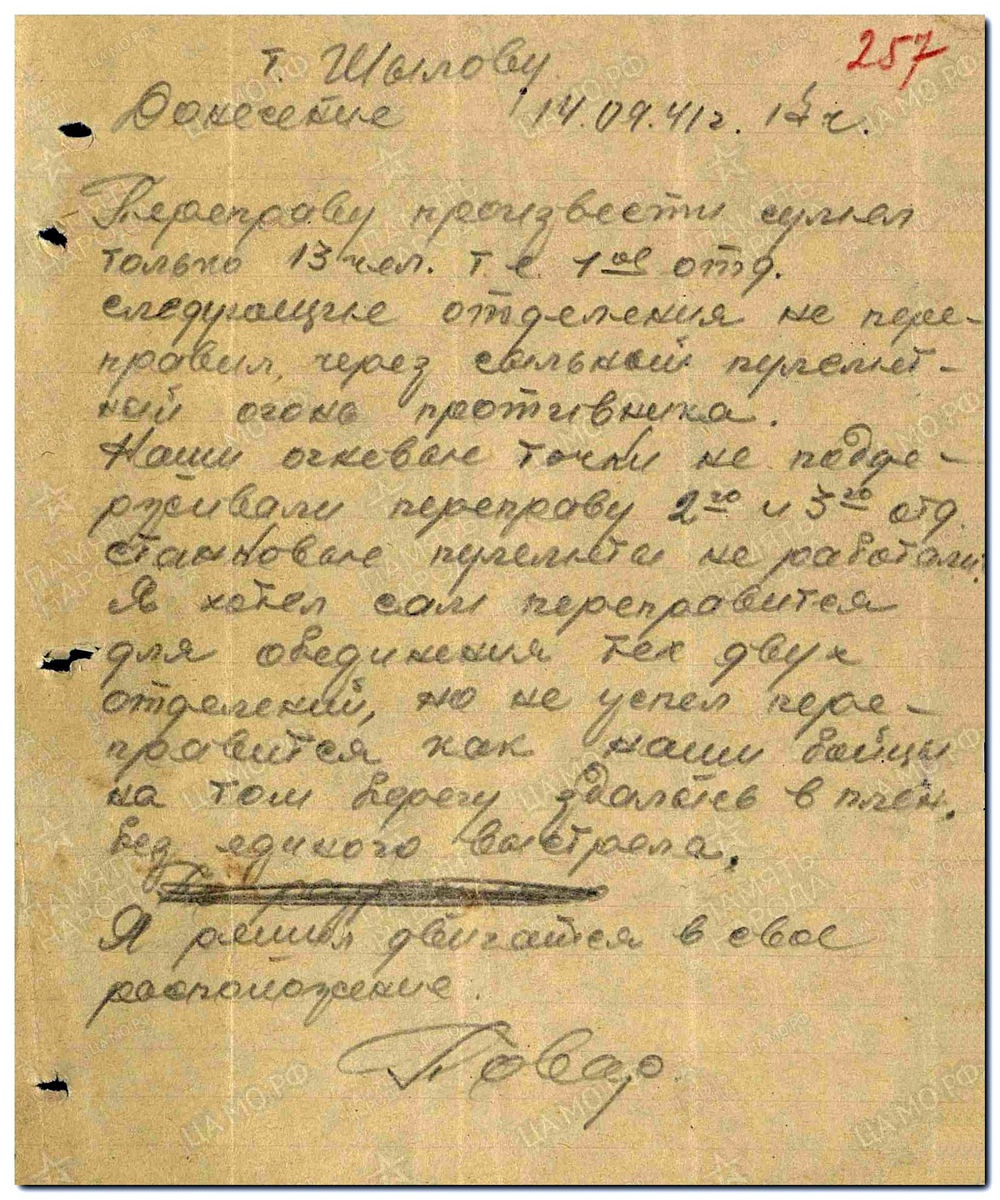 257
т. Шылову
Донесение 14.09.41г. ч.
Переправу произвести сумел
только 13 чел. т.е. 1ое отд.
следующие отделения не пере-
правил, через сильный пулемет-
ный огонь противника.
Наши огневые точки не подде-
рживали переправу 2го и 3го отд.
станковые пулеметы не работали.
Я хотел сам переправится
для обединения тех двух
отделений, но не успел пере-
правится как наши бойцы
на том берегу здались в плен.
без единого выстрела.
Я решил двигатся в свое
расположение.
Повар